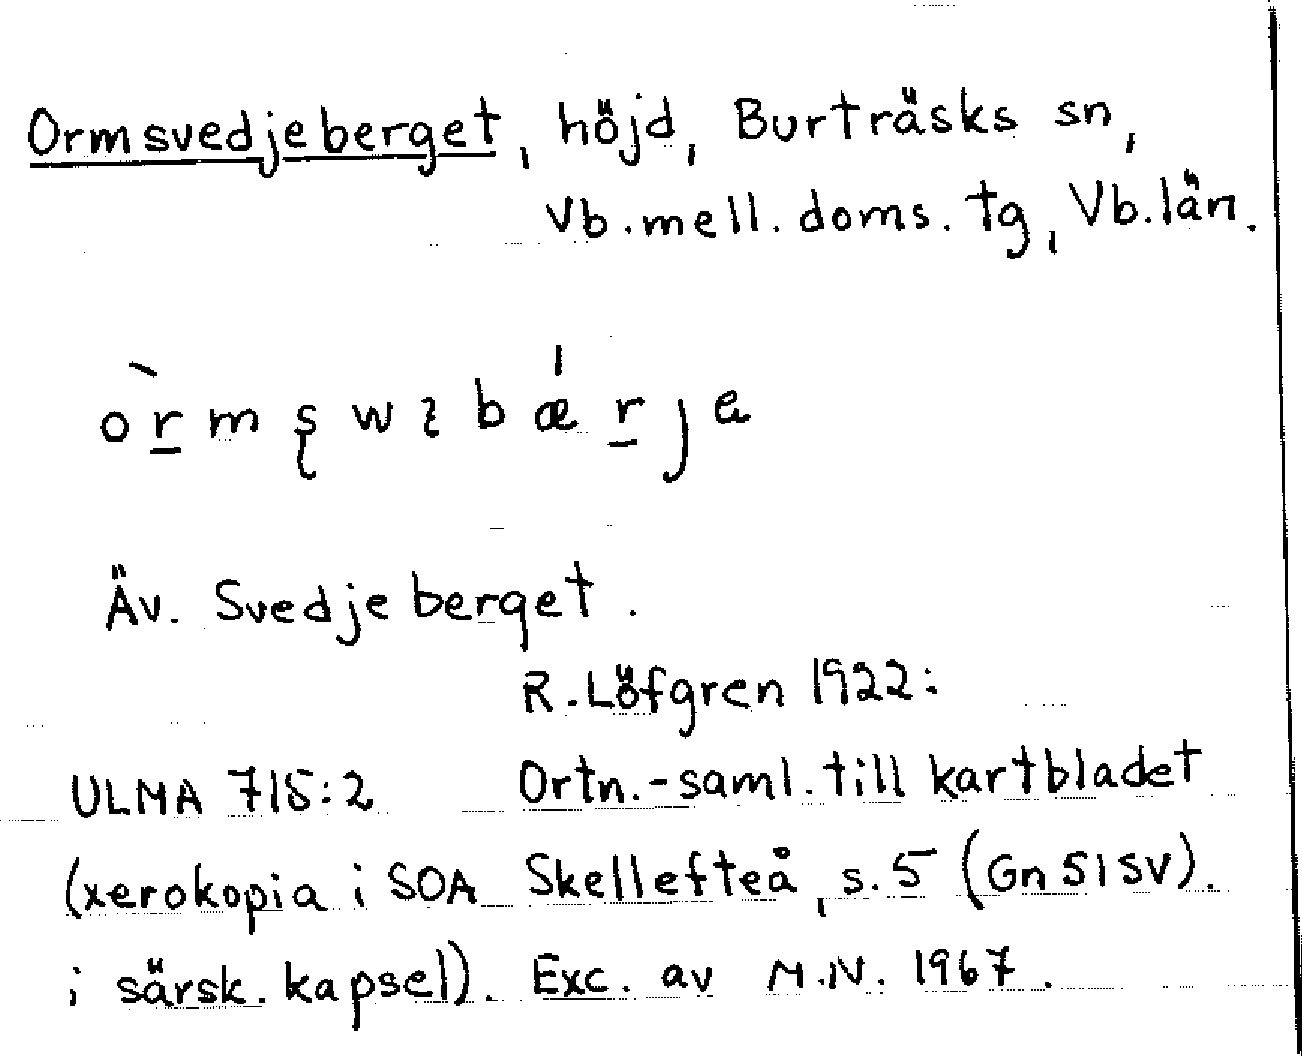 Ormsvedjeberget, höjd, Burträsks sn,
Vb.mell.doms.tg, Vb.län.
Äv. Svedjeberget.
R.Löfgren 1922:
ULMA 715:2 Ortn.-saml.till kartbladet
(xerokopia i SOA Skellefteå, s.5 (Gn51SV).
i särsk. kapsel). Exc. av M.N. 1967.